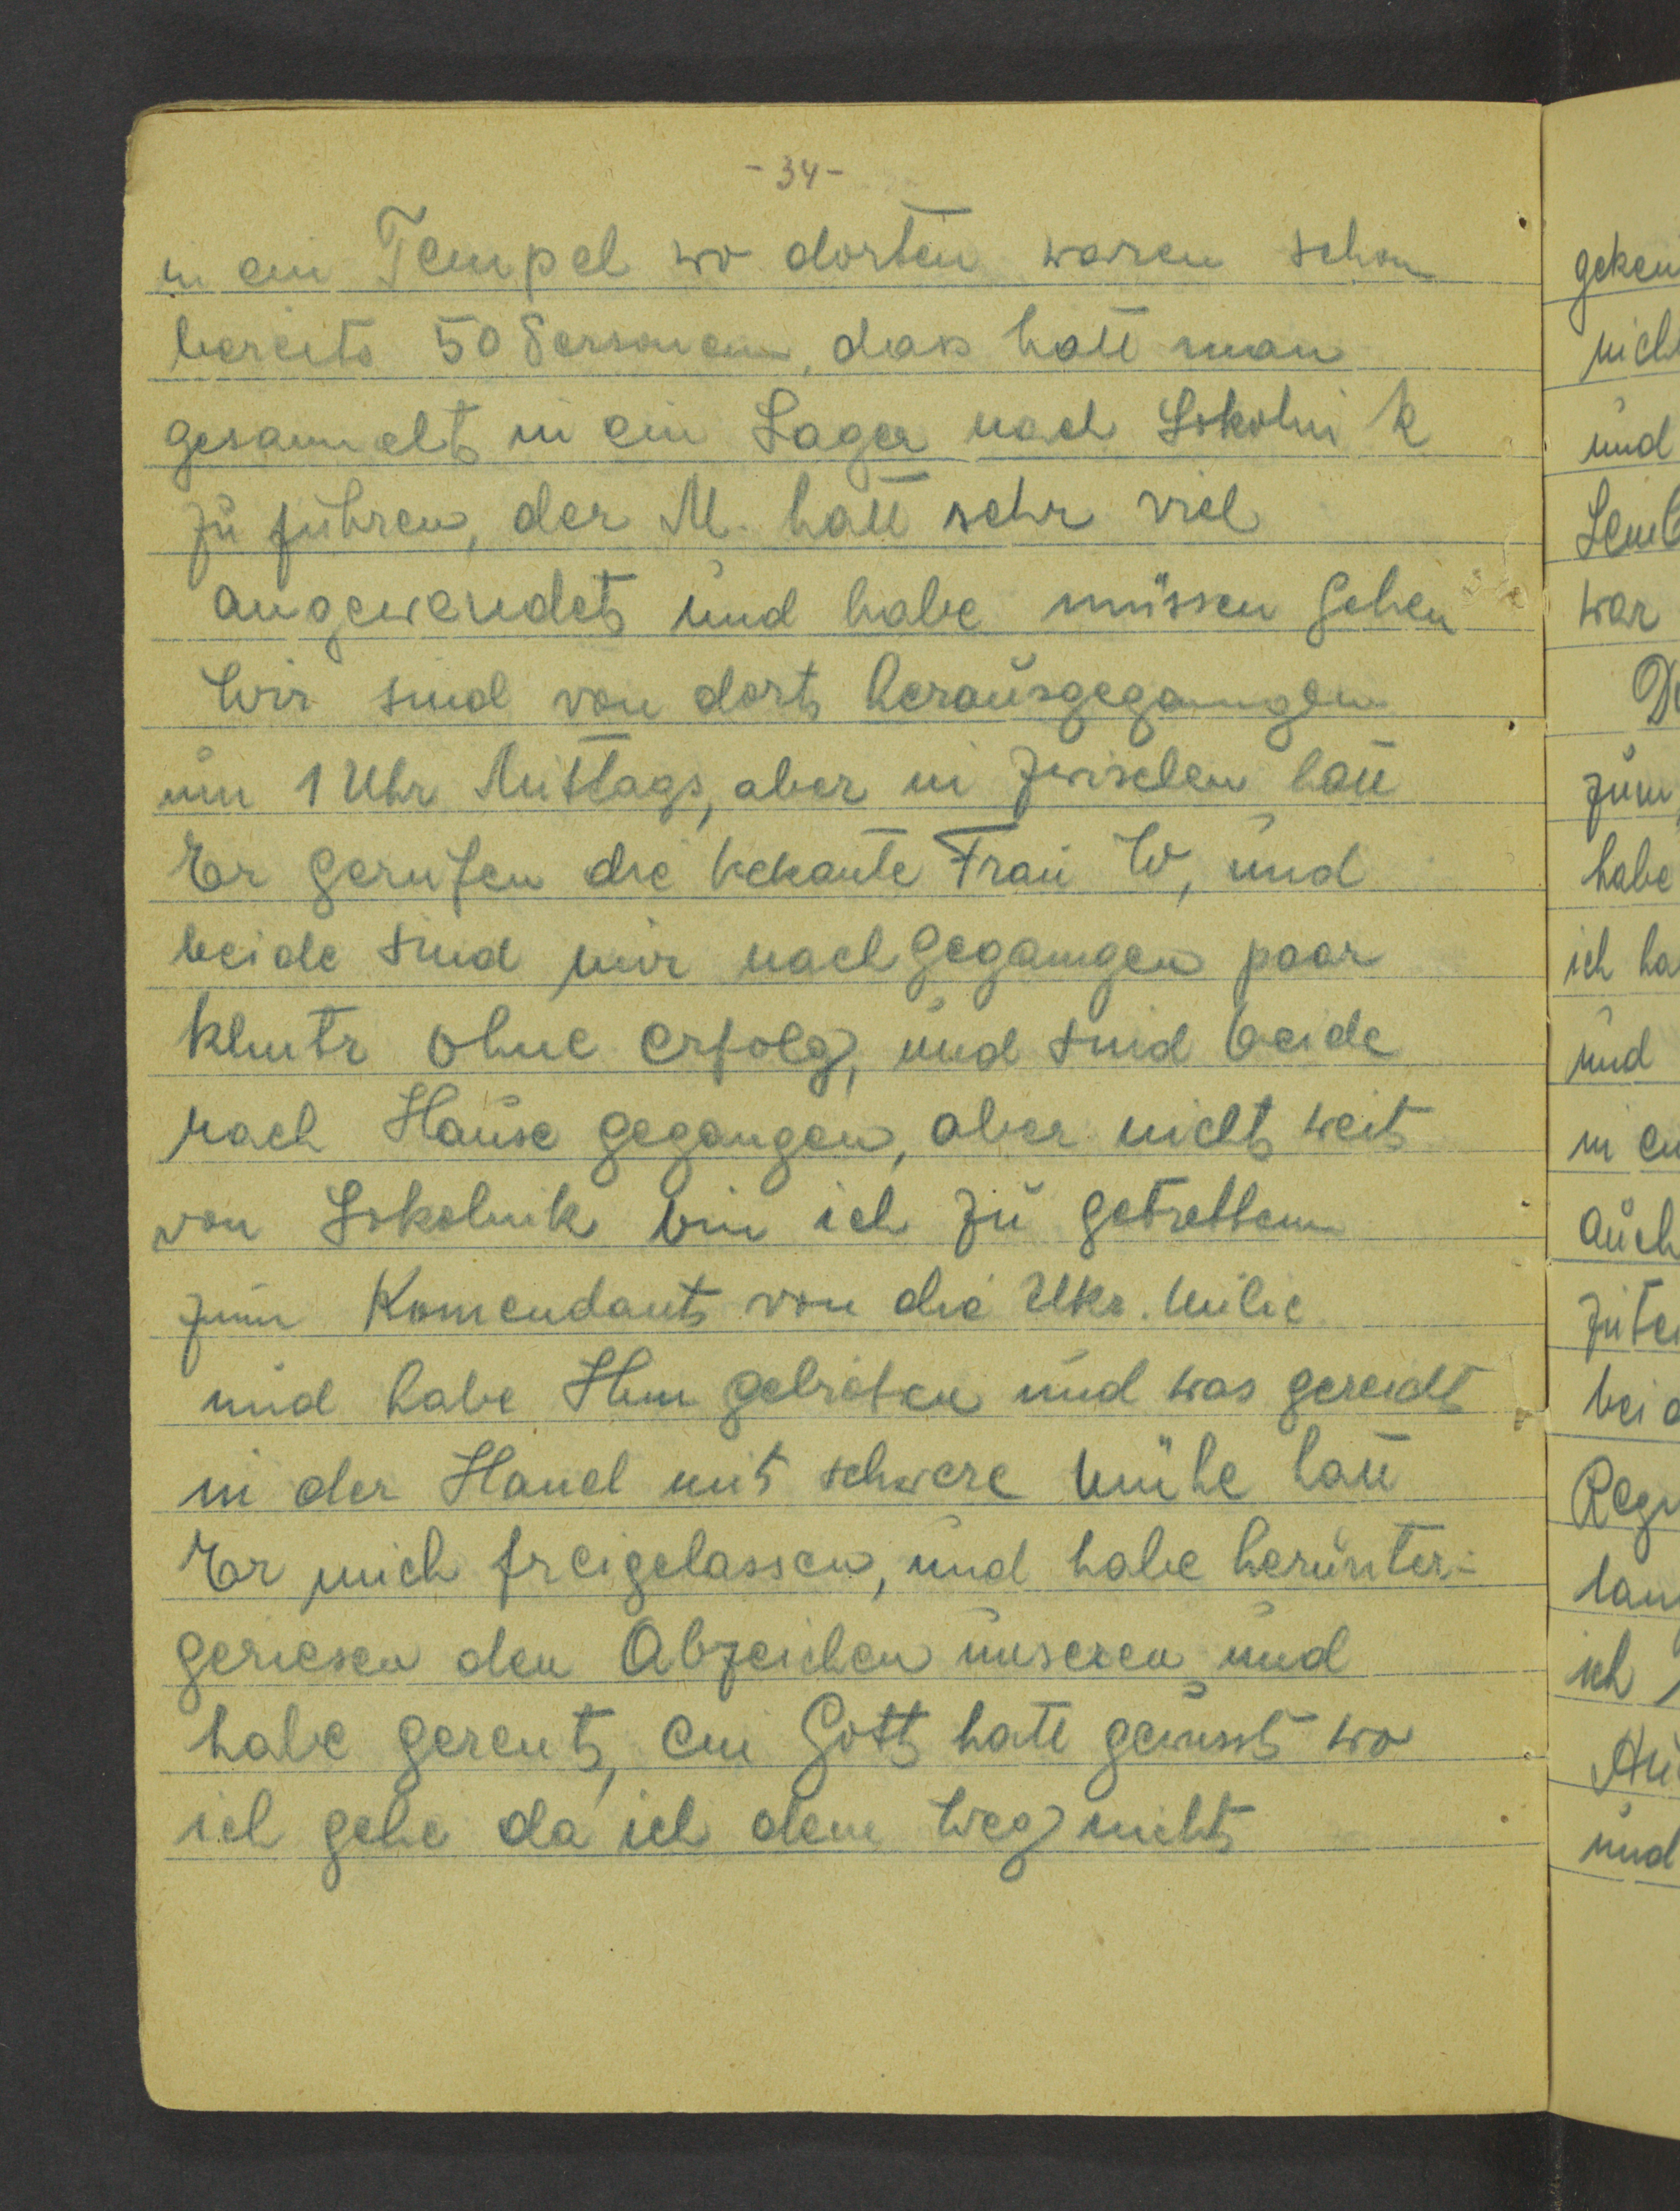 - 34 -
in ein Tempel wo dorten waren schon
bereits 50 Personen, dass hatt man
gesammelt in ein Lager nach Sokolnik
zu führen, der M. hatt sehr viel
angewendet und habe müssen gehen
Wir sind von dort herausgegangen
um 1 Uhr Mittags, aber in zwischen hatt
Er gerufen die bekante Frau W, und
beide sind mir nachgegangen paar
klmtr ohne erfolg, und sind beide
nach Hause gegangen, aber nicht weit
von Sokolnik bin ich zu getretten
zum Komendant von die Ukr. Milic
und habe Ihm gebeten und was gereicht
in der Hand mit schwere Mühe hatt
Er mich freigelassen, und habe herunter-
geriesen den Abzeichen unseren und
habe gerent, ein Gott hatt gewusst wo
ich gehe da ich dem Weg nicht
geken
nich
und
Lemb
war
De
zum
habe
ich ha
und
in ein
auch
zute
bei d
Regi
lan
ich
und